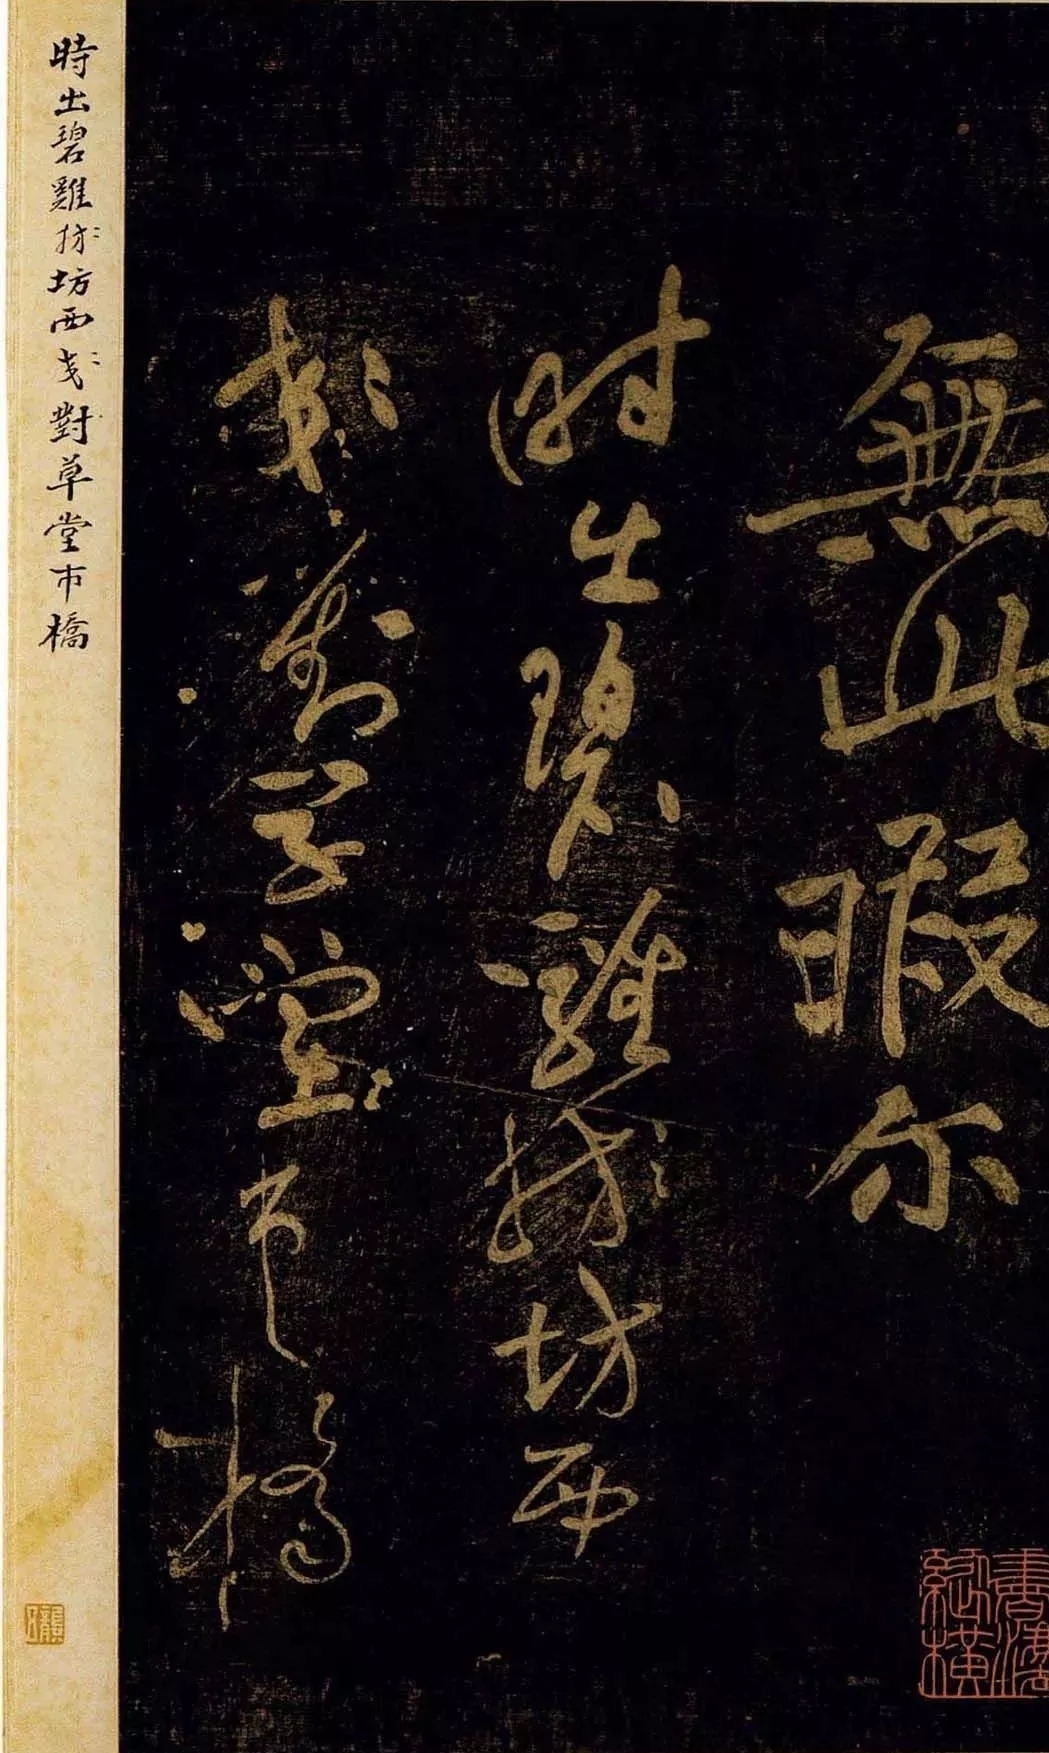 無此暇尔
時出碧雞坊西
對草堂市橋
時出碧雞坊西對草堂市橋